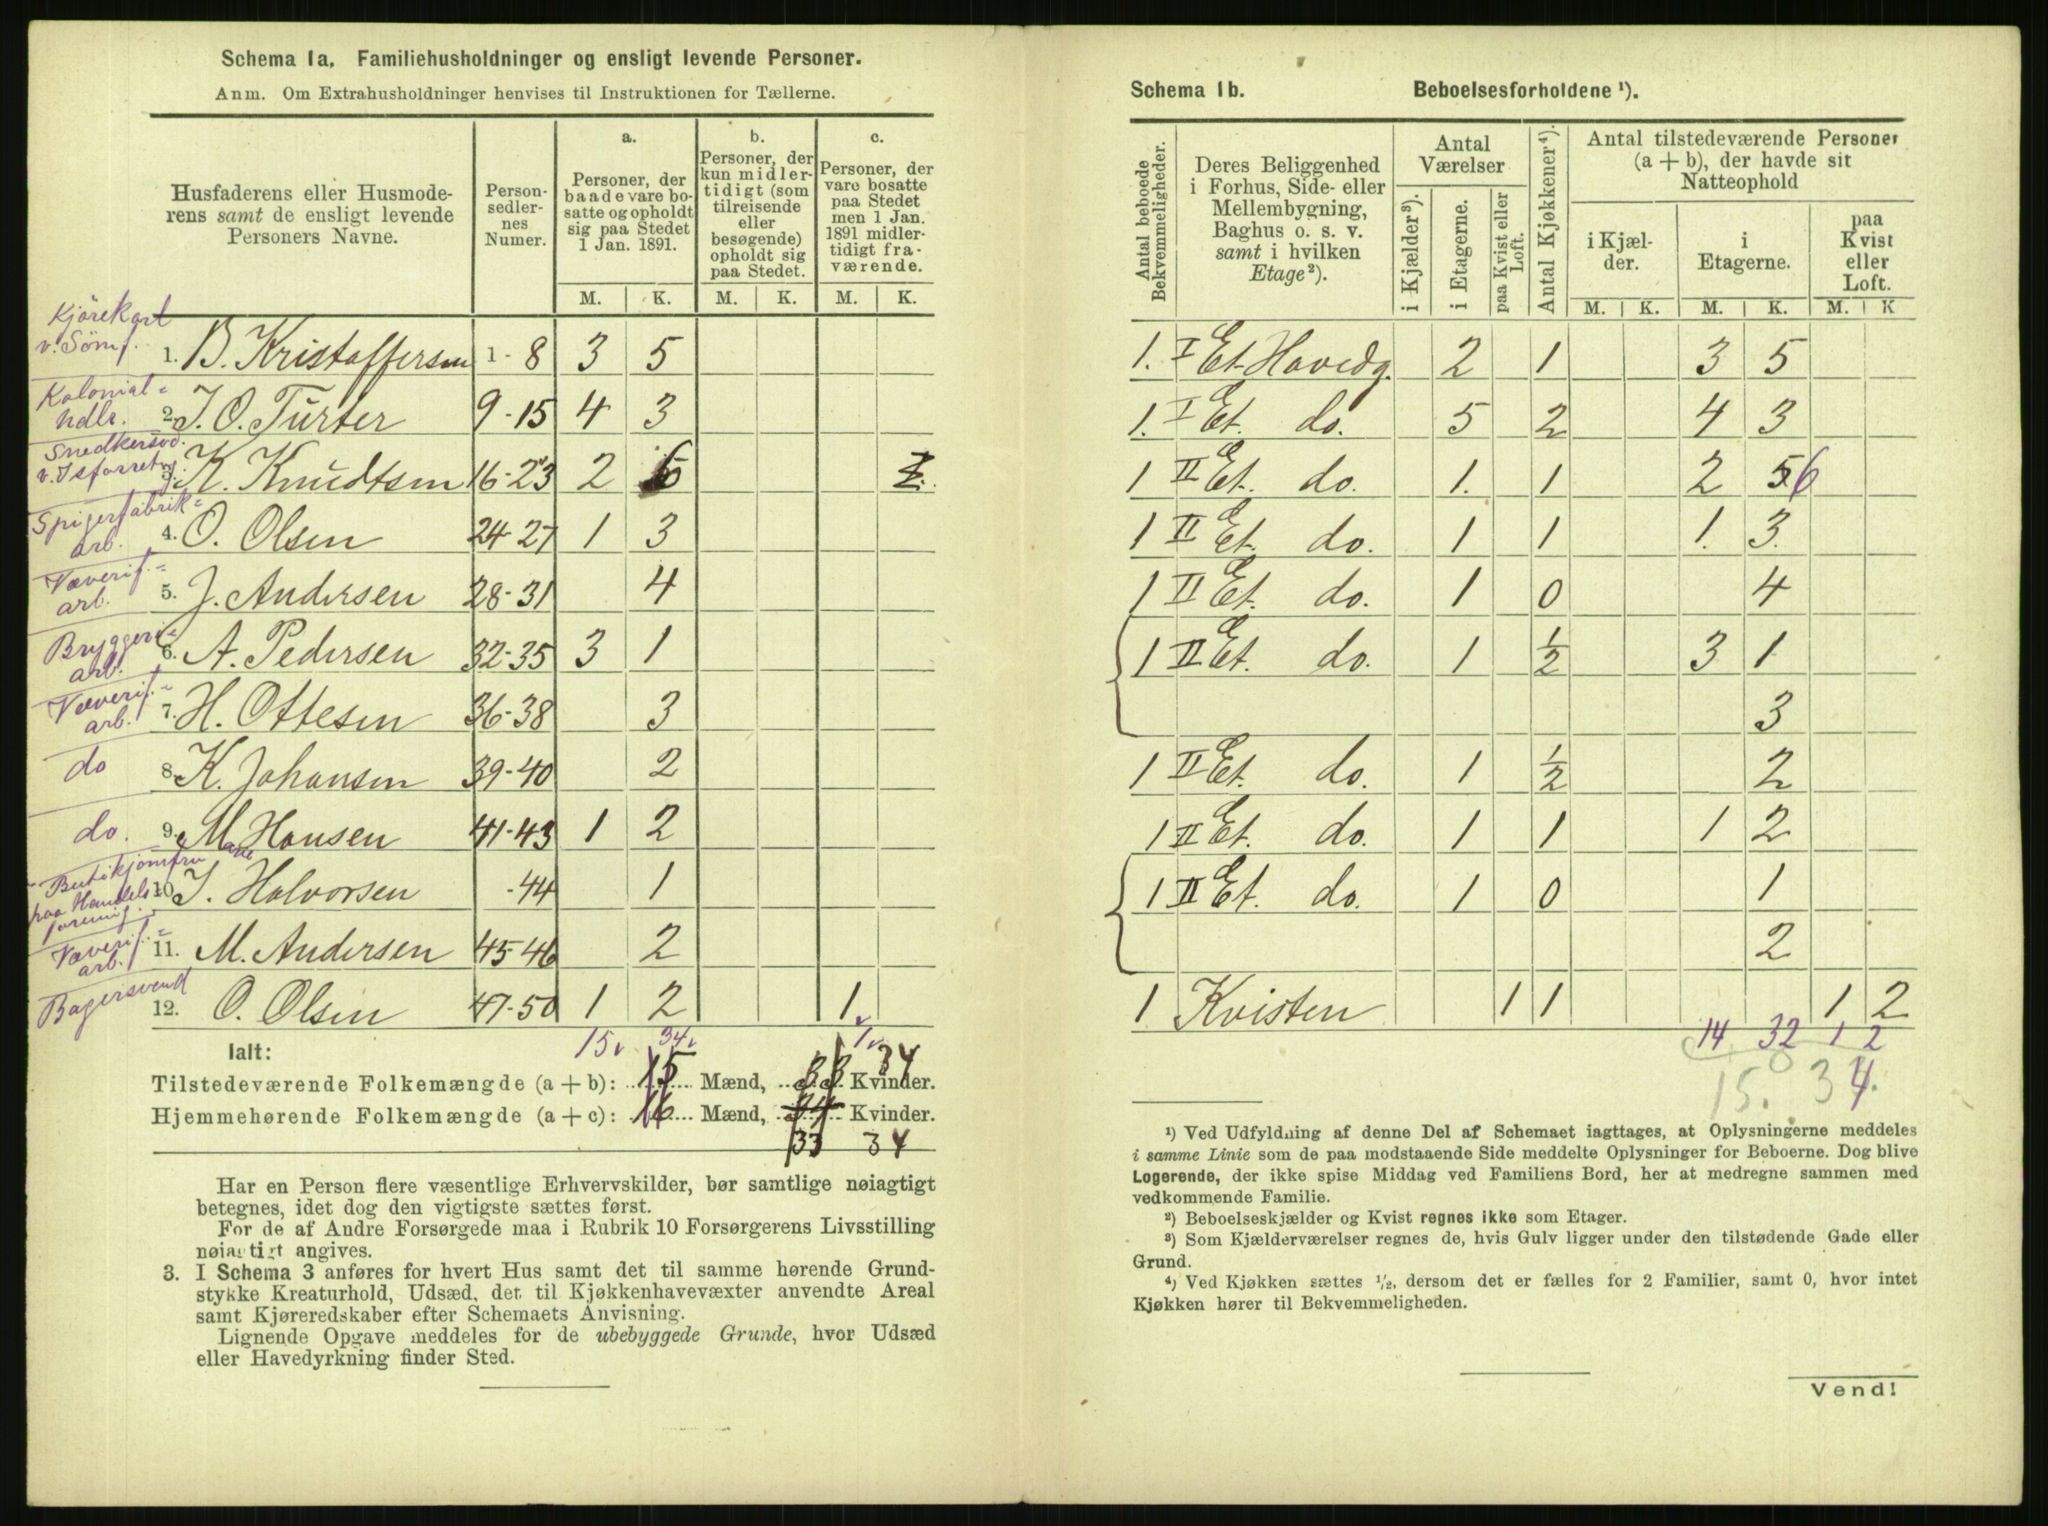 Schema 1a. Familiehusholdninger og ensligt levende Personer.
Anm. Om Extrahusholdninger henvises til Instruktionen for Tællerne.
Husfaderens eller Husmoderens samt de ensligt levende Personers Navne.
Personsedlernes Numer.
a.
Personer, der baade vare bosatte og opholdt sig paa Stedet 1 Jan. 1891.
b.
Personer, der kun midlertidigt (som tilreisende eller besøgende) opholdt sig paa Stedet.
c.
Personer, der vare bosatte paa Stedet men 1 Jan. 1891 midlertidigt fraværende.
M. K. M. K. M. K.
Kjørekarl v. Sömf. 1. B. Kristoffersen 1-8 3 5
Kolonial=hdlr. 2. J. O. Turter 9-15 4 3
Snedkersvd. v. Isforretg. 3. K. Knudtsen 16-23 2 6
Spigerfabrik=arb. 4. O. Olsen 24-27 1 3
Væverif.=arb. 5. J. Andersen 28-31 4
Bryggeri=arb. 6. A. Pedersen 32-35 3 1
Væverif.=arb. 7. H. Ottesen 36-38 3
do 8. K. Johansen 39-40 2
do. 9. M. Hansen 41-43 1 2
Butikjomfru paa Handelsforenig. 10. J. Halvorsen -44 1
Væverif.=arb. 11. M. Andersen 45-46 2
Bagersvend 12. O. Olsen 47-50 1 2 1
15 34 1
Ialt:
Tilstedeværende Folkemængde (a + b): 15 Mænd, 33 Kvinder. 34
Hjemmehørende Folkemængde (a + c): 16 Mænd, 34 Kvinder.
33 34
Har en Person flere væsentlige Erhvervskilder, bør samtlige nøiagtigt
betegnes, idet dog den vigtigste sættes først.
For de af Andre Forsørgede maa i Rubrik 10 Forsørgerens Livsstilling
nøiagtigt angives.
3. I Schema 3 anføres for hvert Hus samt det til samme hørende Grund-
stykke Kreaturhold, Udsæd, det til Kjøkkenhavevæxter anvendte Areal
samt Kjøreredskaber efter Schemaets Anvisning.
Lignende Opgave meddeles for de ubebyggede Grunde, hvor Udsæd
eller Havedyrkning finder Sted.
Schema 1b. Beboelsesforholdene ¹).
Antal beboede Bekvemmeligheder.
Deres Beliggenhed i Forhus, Side- eller Mellembygning, Baghus o. s. v. samt i hvilken Etage ²).
Antal Værelser
i Kjælder ³).
i Etagerne.
paa Kvist eller Loft.
Antal Kjøkkener ⁴).
Antal tilstedeværende Personer (a + b), der havde sit Natteophold
i Kjælder.
i Etagerne.
paa Kvist eller Loft.
M. K. M. K. M. K
1. I Et. Hovedg. 2 1 3 5
1. I Et. do. 5 2 4 3
1 II Et. do. 1. 1 2 5 6
1 II Et. do. 1 1 1. 3.
1 II Et. do. 1 0 4
1 II Et. do. 1 ½ 3 1
3
1 II Et. do. 1 ½ 2
1 II Et. do. 1 1 1 2
1 II Et. do. 1 0 1
2
1 Kvisten 1 1 1 2
14 32 1 2
15. 34.
¹) Ved Udfyldning af denne Del af Schemaet iagttages, at Oplysningerne meddeles
i samme Linie som de paa modstaaende Side meddelte Oplysninger for Beboerne. Dog blive
Logerende, der ikke spise Middag ved Familiens Bord, her at medregne sammen med
vedkommende Familie.
²) Beboelseskjælder og Kvist regnes ikke som Etager.
³) Som Kjælderværelser regnes de, hvis Gulv ligger under den tilstødende Gade eller
Grund.
⁴) Ved Kjøkken sættes ½, dersom det er fælles for 2 Familier, samt 0, hvor intet
Kjøkken hører til Bekvemmeligheden.
Vend!